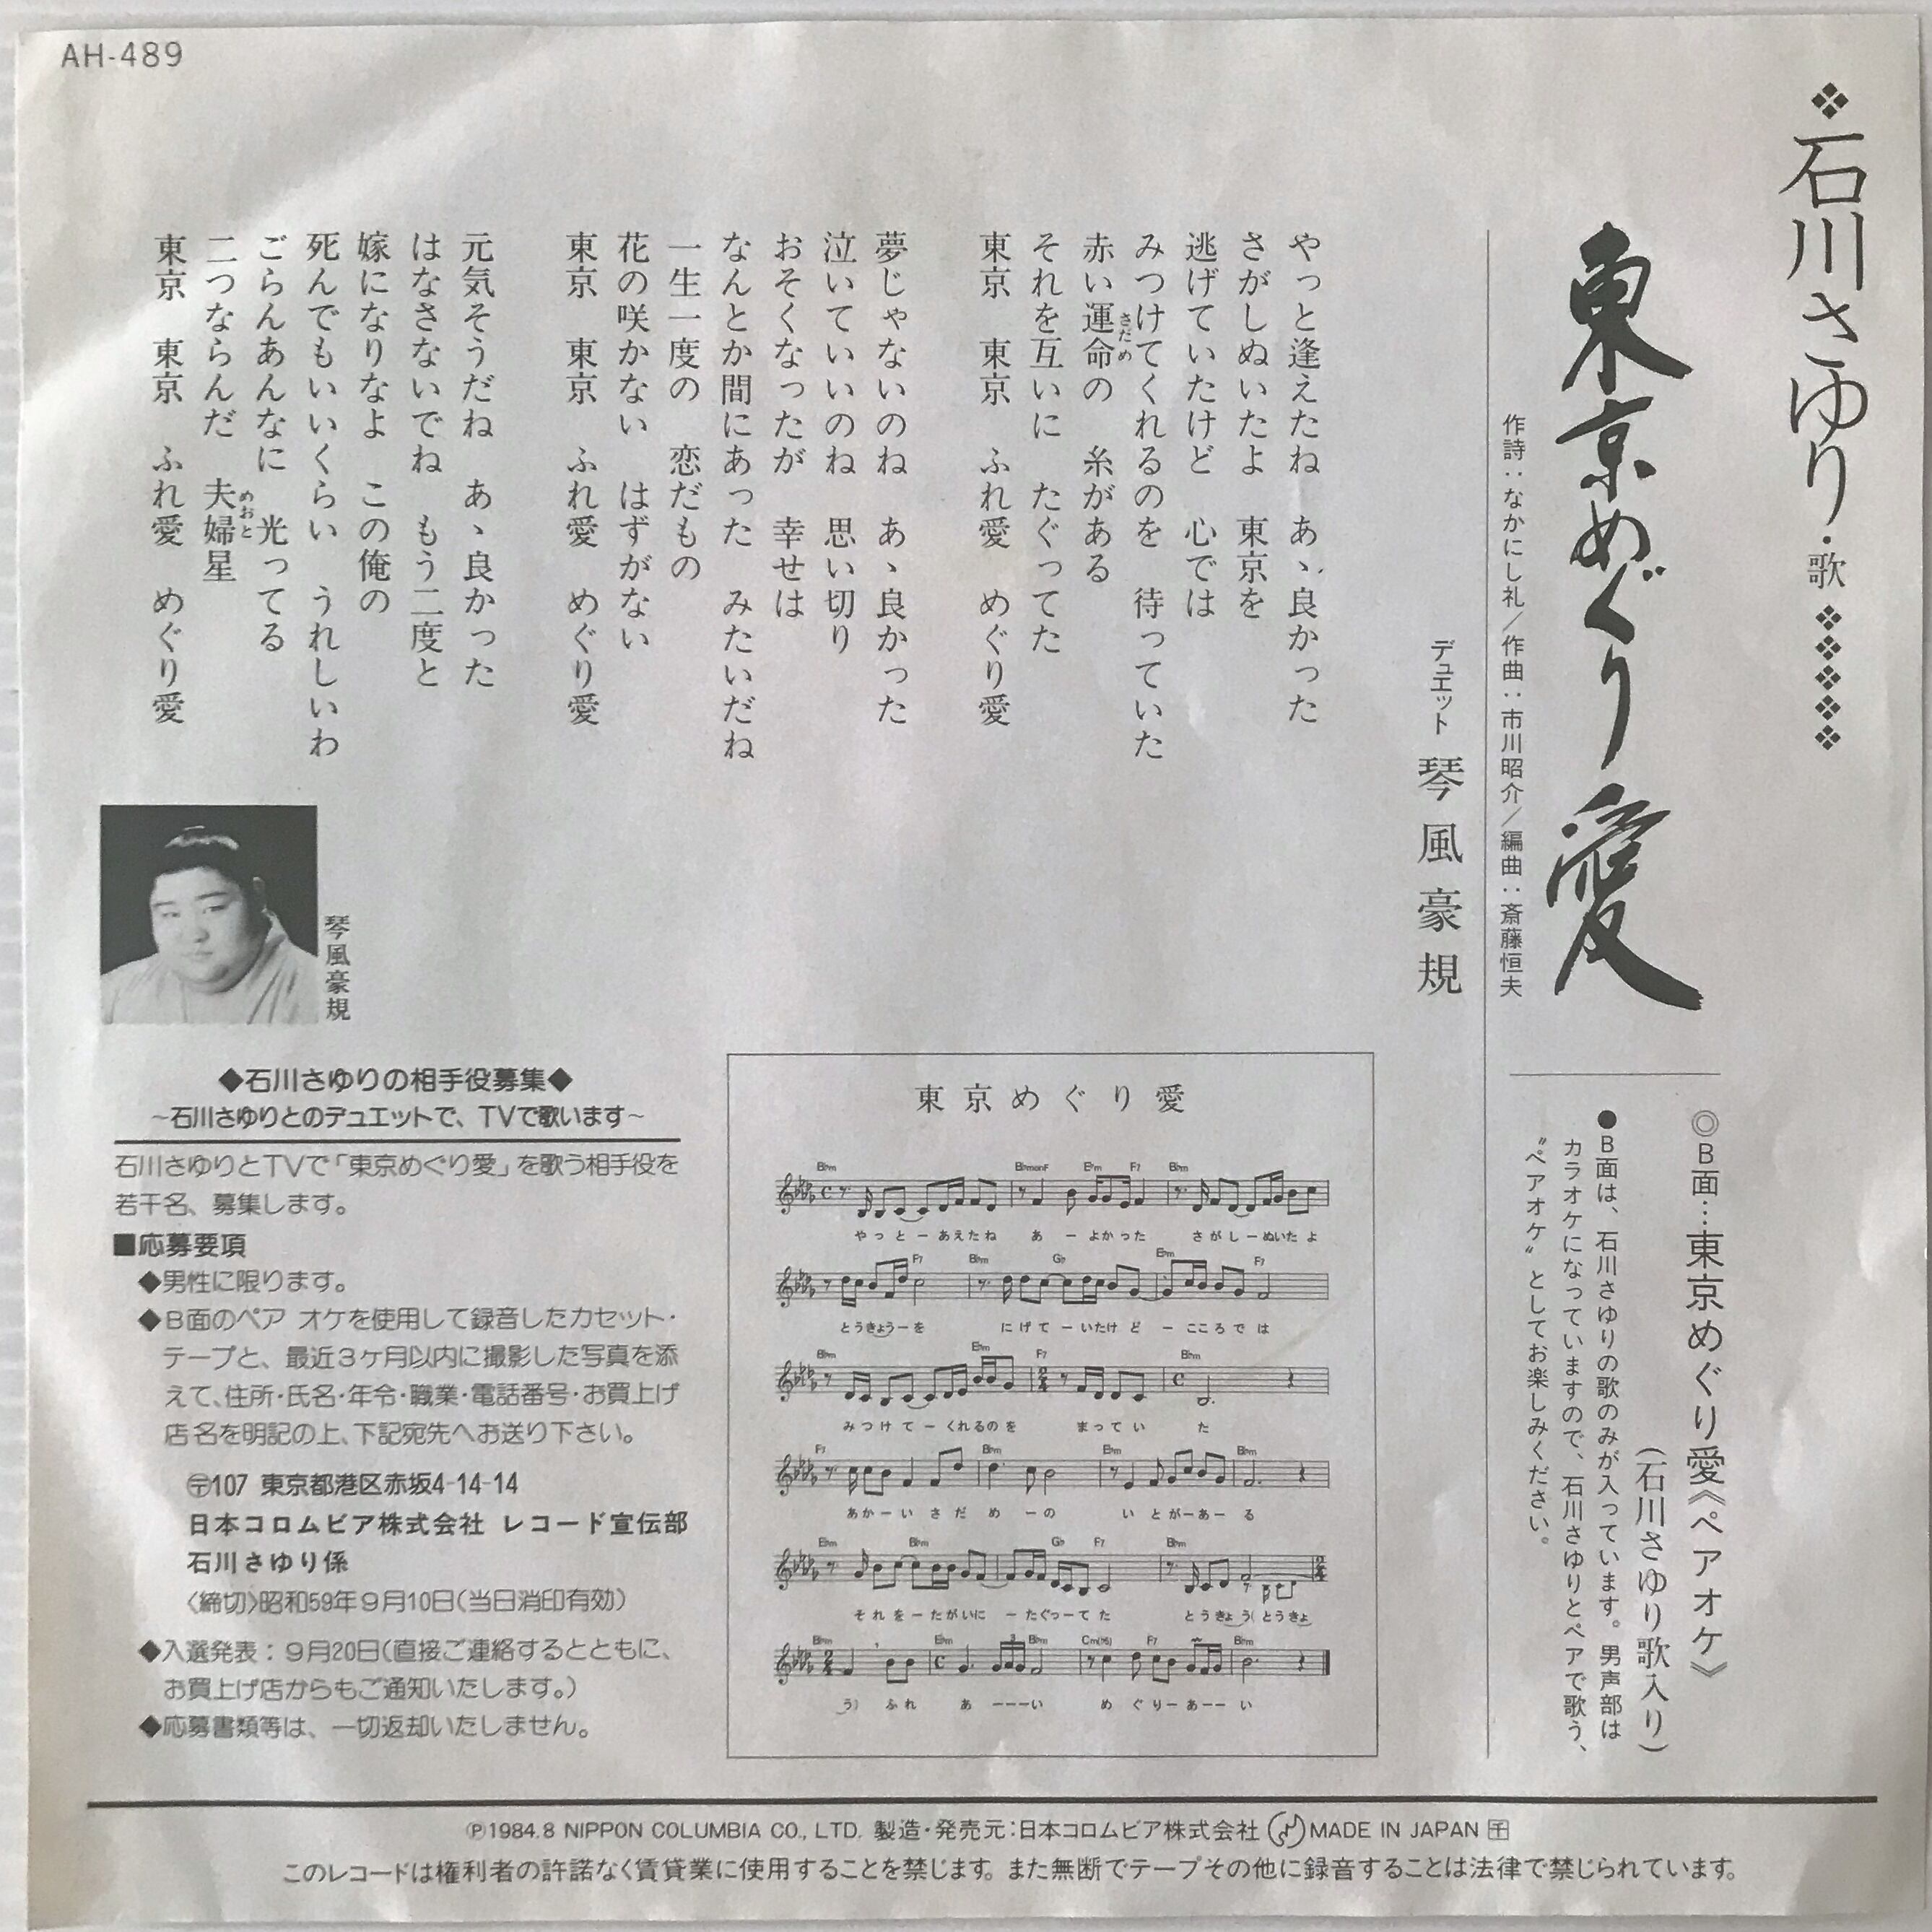 AH-489
❖石川さゆり・歌❖❖❖❖❖
東京めぐり愛
作詩：なかにし礼／作曲：市川昭介／編曲：斎藤恒夫
デュエット 琴風豪規
やっと逢えたね　あゝ良かった
さがしぬいたよ　東京を
逃げていたけど　心では
みつけてくれるのを　待っていた
赤い運命の　糸がある
さだめ
それを互いに　たぐってた
東京　東京　ふれ愛　めぐり愛
夢じゃないのね　あゝ良かった
泣いていいのね　思い切り
おそくなったが　幸せは
なんとか間にあった　みたいだね
一生一度の　恋だもの
花の咲かない　はずがない
東京　東京　ふれ愛　めぐり愛
元気そうだね　あゝ良かった
はなさないでね　もう二度と
嫁になりなよ　この俺の
死んでもいいくらい　うれしいわ
ごらんあんなに　光ってる
二つならんだ　夫婦星
めおと
東京　東京　ふれ愛　めぐり愛
琴風豪規
◎B面…東京めぐり愛《ペアオケ》
（石川さゆり歌入り）
●B面は、石川さゆりの歌のみが入っています。男声部は
カラオケになっていますので、石川さゆりとペアで歌う、
〝ペアオケ〟としてお楽しみください。
◆石川さゆりの相手役募集◆
~石川さゆりとのデュエットで、TVで歌います~
石川さゆりとTVで「東京めぐり愛」を歌う相手役を
若干名、募集します。
■応募要項
◆男性に限ります。
◆B面のペア オケを使用して録音したカセット・
テープと、最近3ヶ月以内に撮影した写真を添
えて、住所・氏名・年令・職業・電話番号・お買上げ
店名を明記の上、下記宛先へお送り下さい。
〒107 東京都港区赤坂4-14-14
日本コロムビア株式会社 レコード宣伝部
石川さゆり係
〈締切〉昭和59年9月10日(当日消印有効)
◆入選発表：9月20日(直接ご連絡するとともに、
お買上げ店からもご通知いたします。)
◆応募書類等は、一切返却いたしません。
東京めぐり愛
やっと－あえたね　あ－よかった　さがし－ぬいたよ
とうきょう－を　にげて－いたけど　－こころでは
みつけて－くれるのを　まってい　た
あか－いさだめ　－の　いとが－あ－る
それを－たがいに　－たぐっ－てた　とうきょう(とうきょ
う)　ふれ　あ　－－－い　めぐり－あ－－い
Ⓟ1984.8 NIPPON COLUMBIA CO., LTD. 製造・発売元：日本コロムビア株式会社 MADE IN JAPAN
このレコードは権利者の許諾なく賃貸業に使用することを禁じます。また無断でテープその他に録音することは法律で禁じられています。